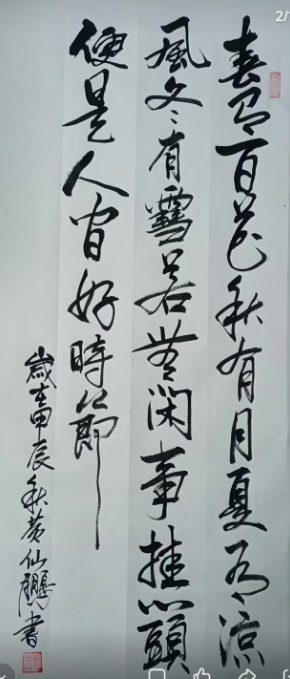 春有百花秋有月夏有涼
風冬有雪若無閑事挂心頭
便是人間好時節
歲在甲辰秋黄仙鵬書
2/